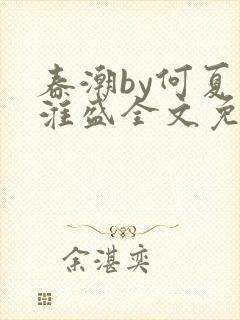 春潮by何夏
漄盛全文免
余湛奕